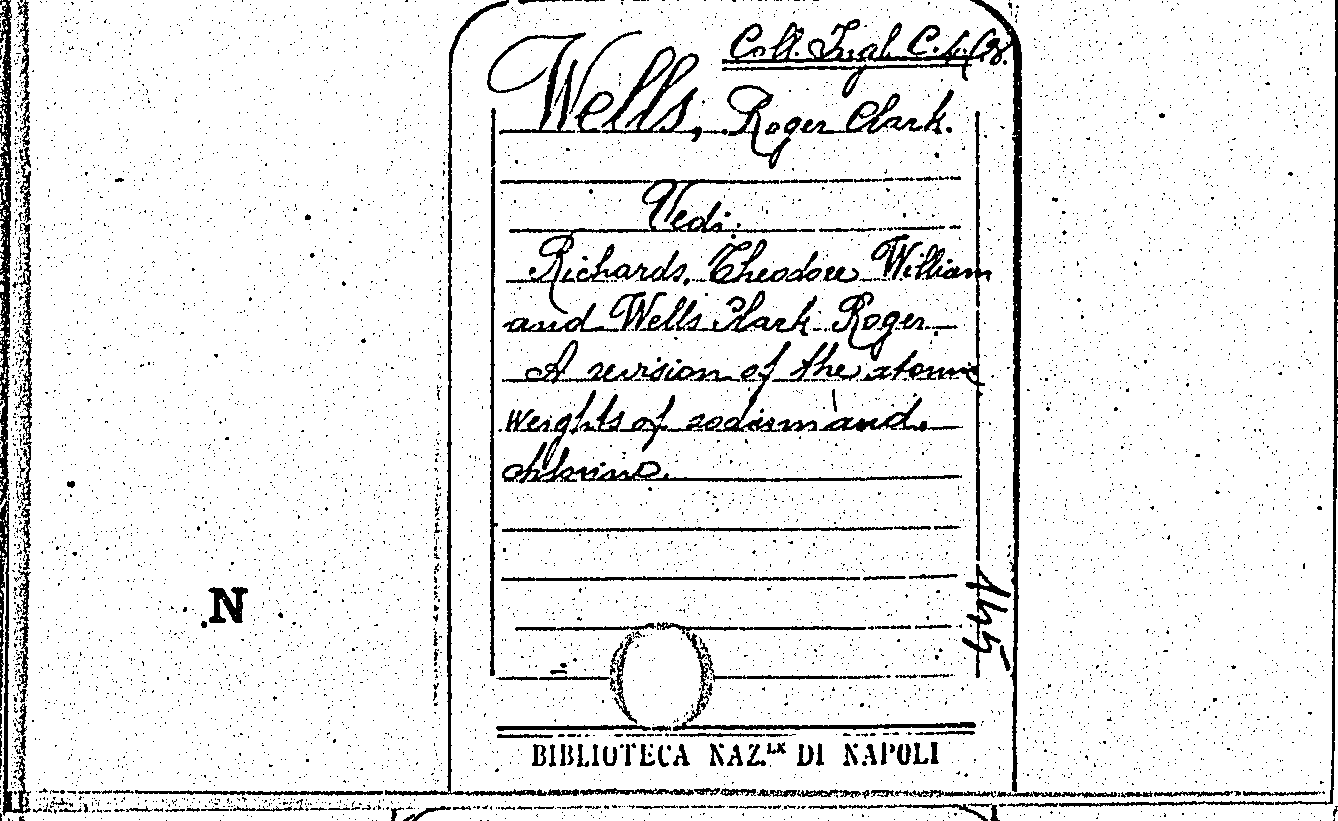 Coll. Ingl. C. 4/28.
Wells, Roger Clark.
Vedi:
Richards, Theodore William
and Wells Clark Roger
A revision of the atomic
weights of sodium and
chlorine.
145
N
1.
BIBLIOTECA NAZ.LE DI NAPOLI